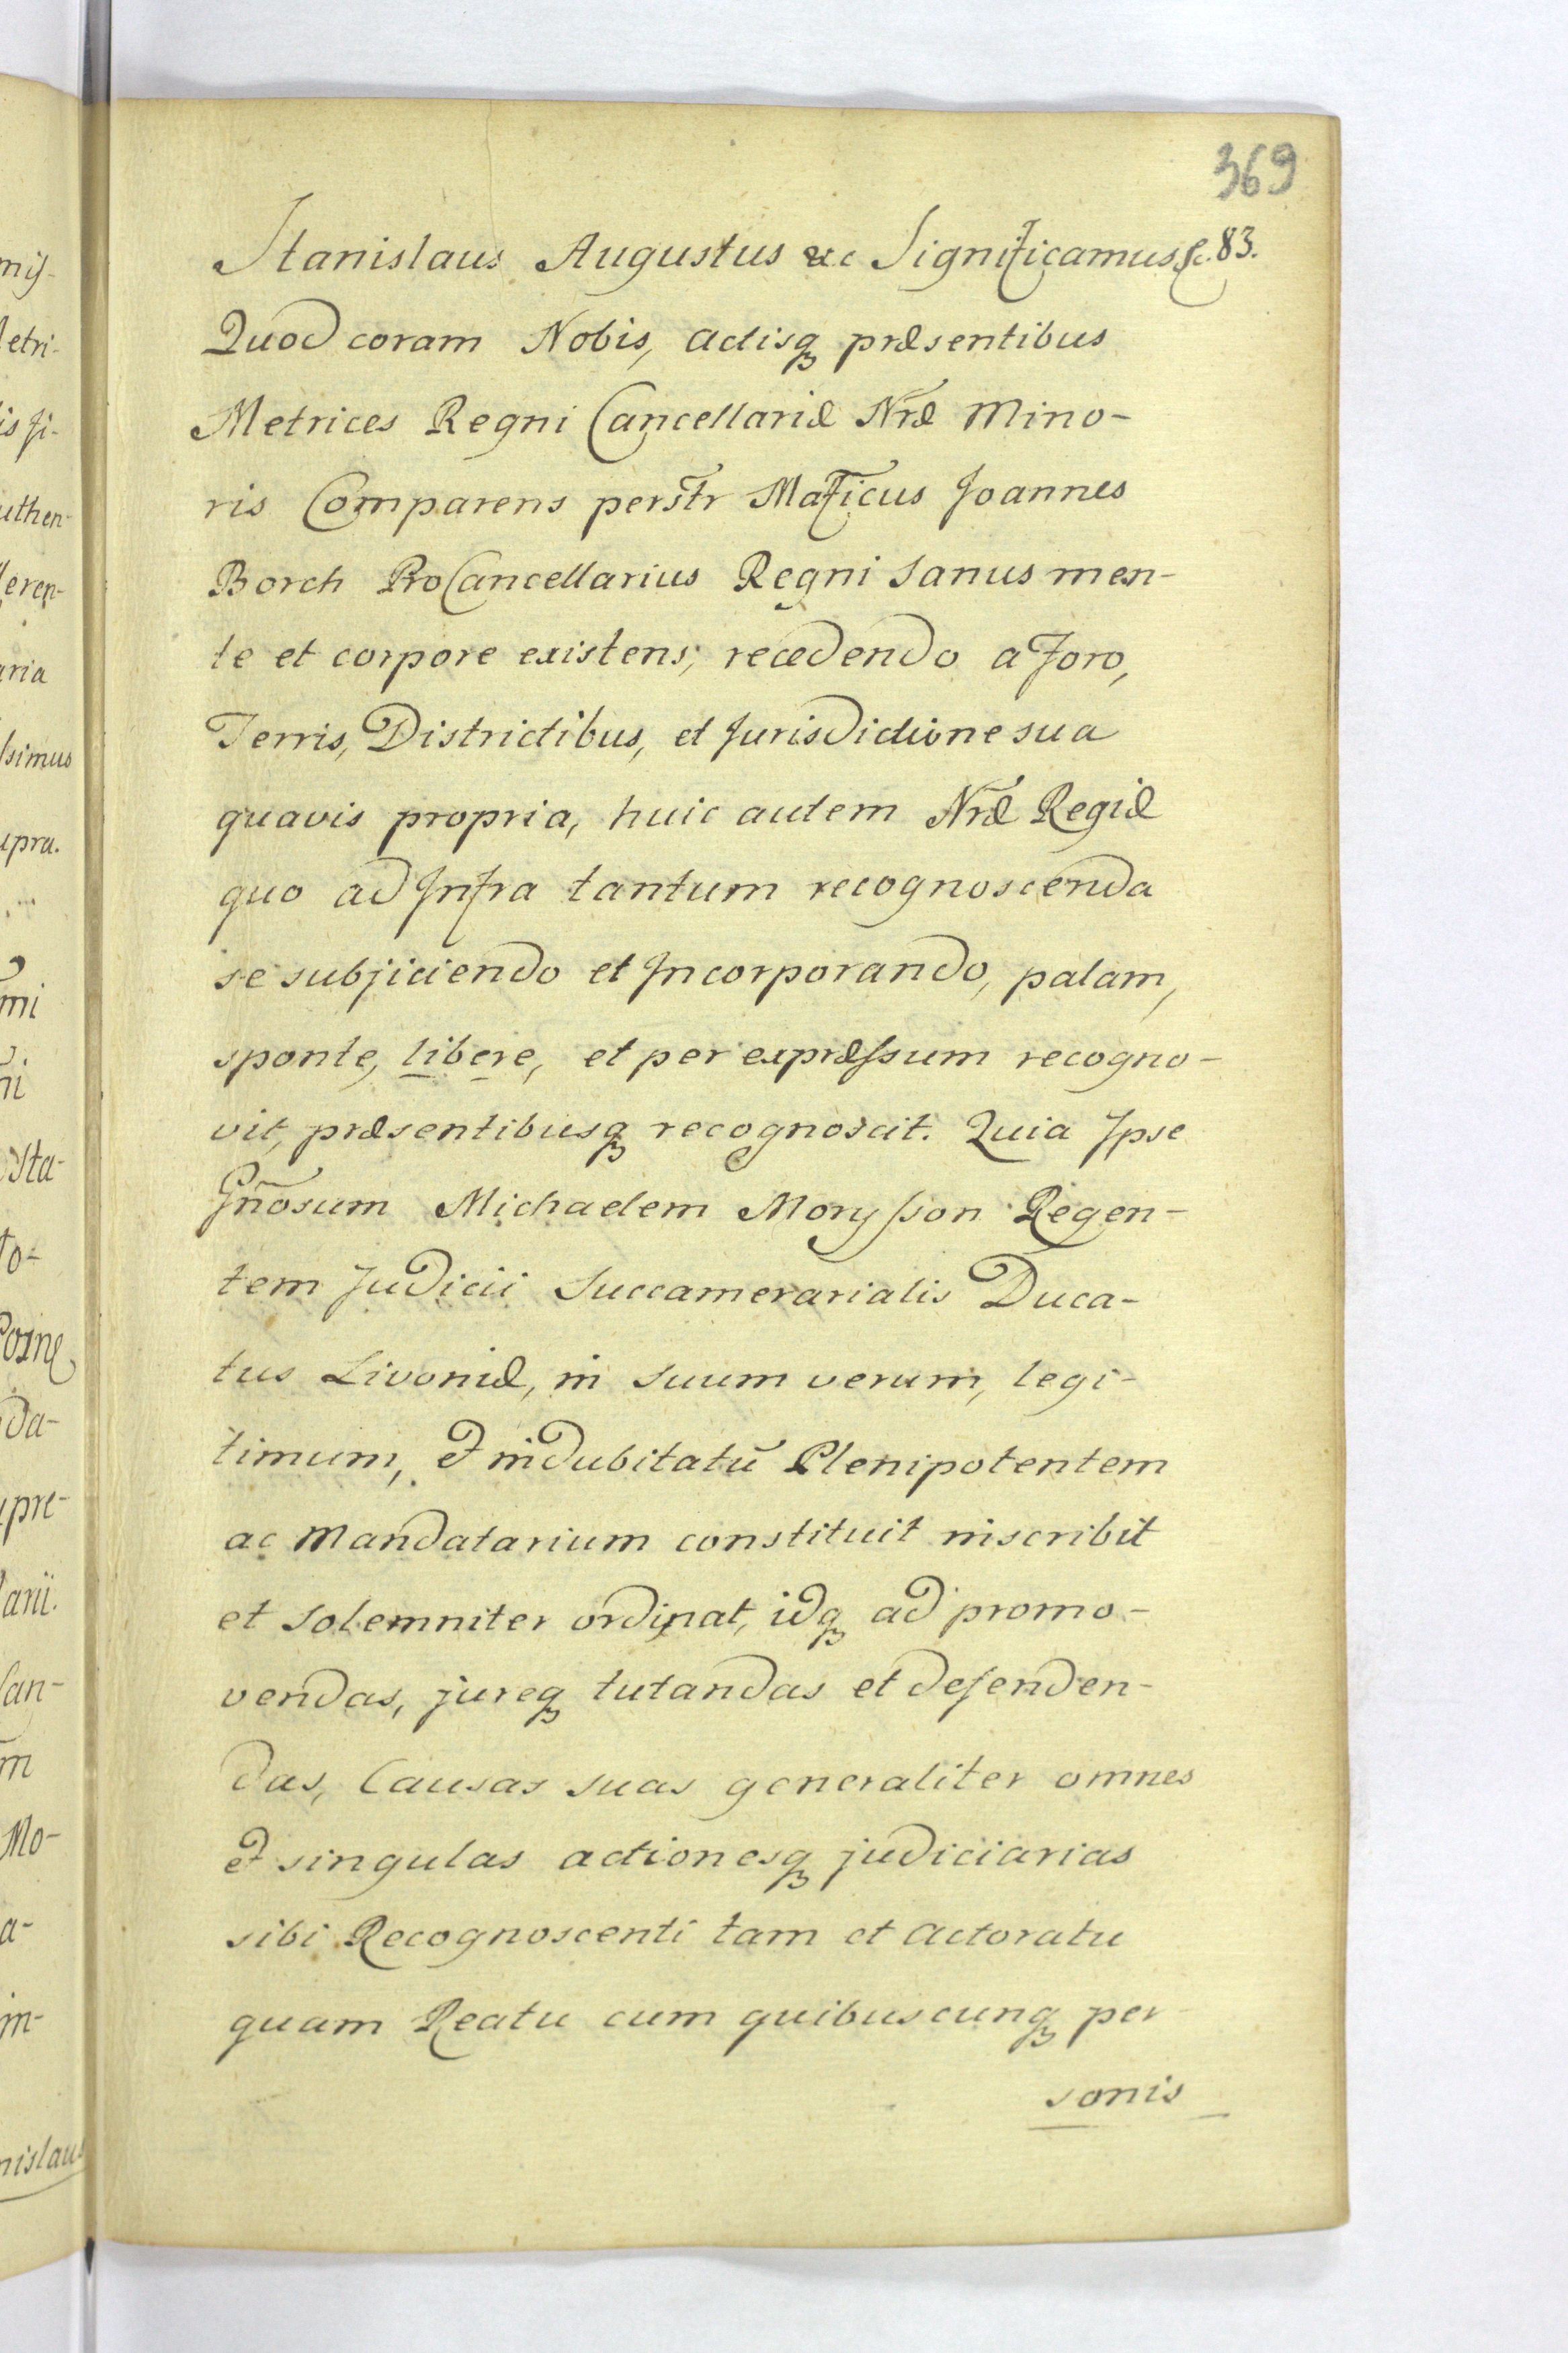 369
Stanislaus Augustus &c Significamus &c. 83.
Quod coram Nobis, actisq præsentibus
Metrices Regni Cancellariæ Nræ Mino-
ris Comparens perstr Maficus Joannes
Borch ProCancellarius Regni sanus men-
te et corpore existens, recedendo a Foro,
Terris, Districtibus, et Jurisdictione sua
quavis propria, huic autem Nræ Regiæ
quo ad Infra tantum recognoscenda
se subjiciendo et Incorporando, palam,
sponte, libere, et per expræssum recogno-
vit, præsentibusq recognoscit. Quia Ipse
Gnosum Michaelem Morysson Regen-
tem Judicii Succamerarialis Duca-
tus Livoniæ, in suum verum, legi-
timum, et indubitatū Plenipotentem
ac Mandatarium constituit inscribit
et solemniter ordinat, idq ad promo-
vendas, jureq tutandas et defenden-
das, Causas suas generaliter omnes
et singulas actionesq judiciarias
sibi Recognoscenti tam et actoratu
quam Reatu cum quibuscunq per
sonis
mij-
etri-
is fi-
uthen-
feren-
aria
ssimus
upra.
mi
ni
sta-
to-
da-
pre-
arii.
an-
m
Mo-
a-
in-
nislaus